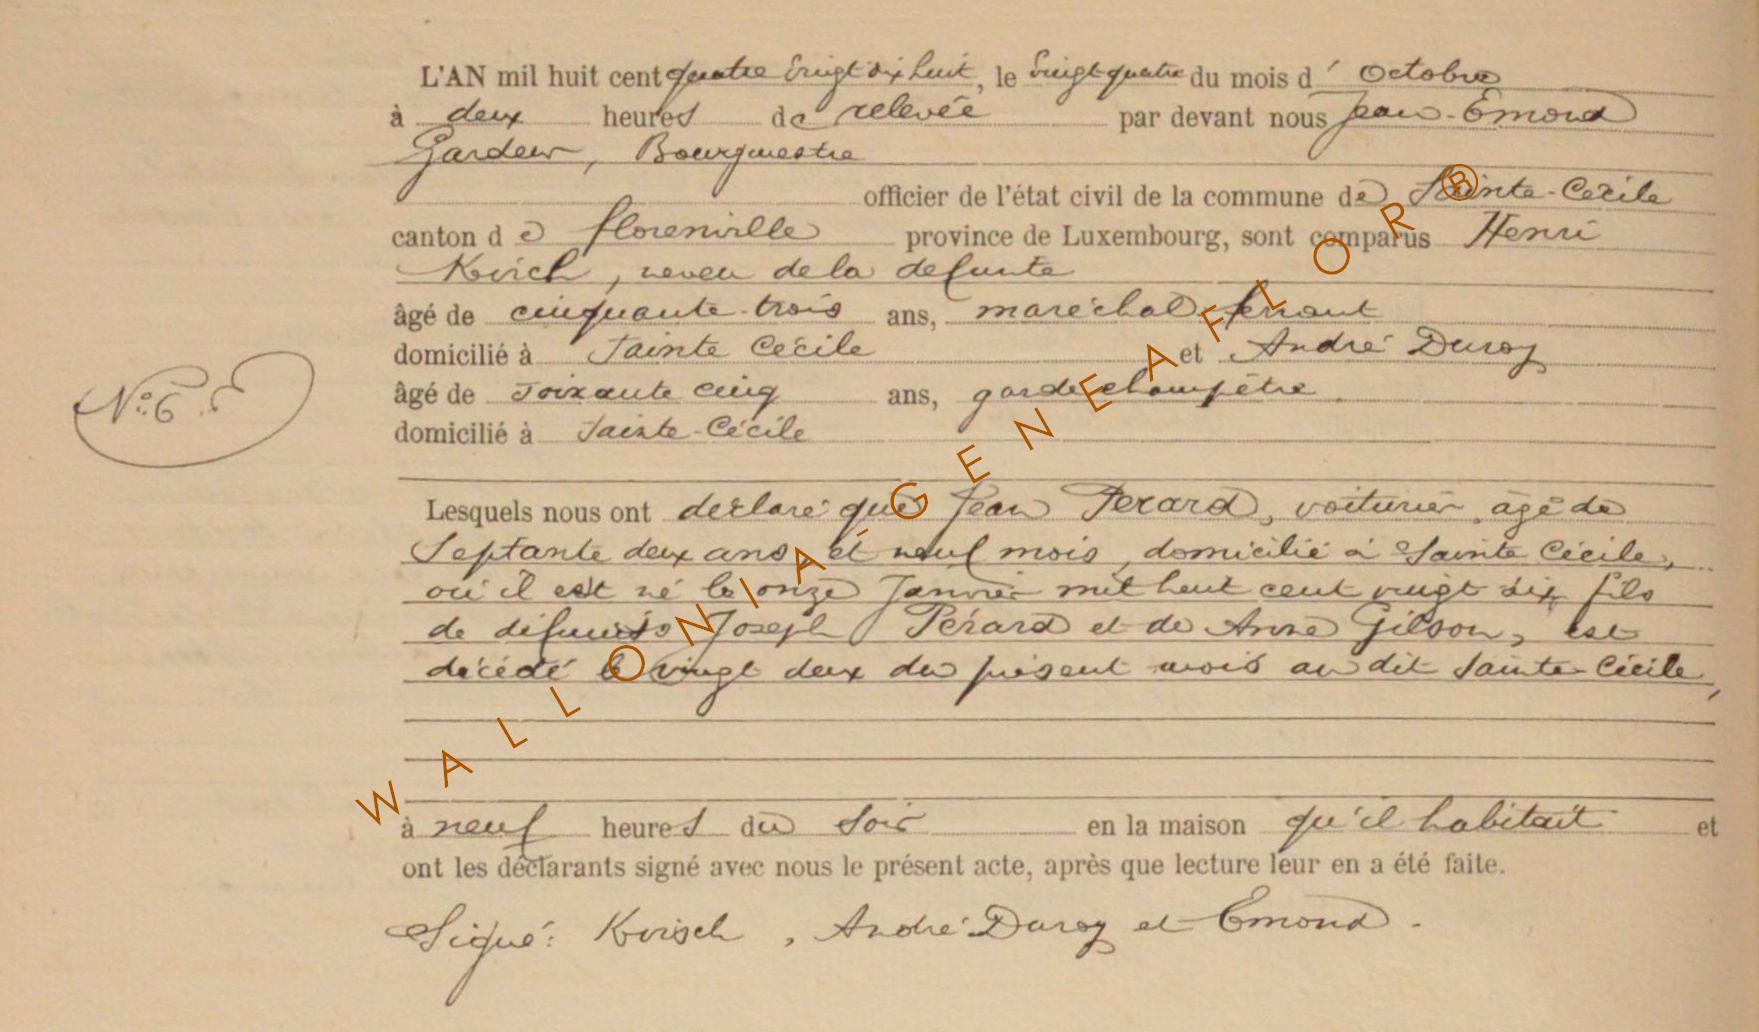 L'AN mil huit cent quatre vingt dix huit, le vingt quatre du mois d' Octobre
à deux heures de relevée par devant nous Jean-Emond
Gardeur, Bourgmestre
officier de l'état civil de la commune de Sainte-Cécile
canton de florenville province de Luxembourg, sont comparus Henri
neveu de la defunte
âgé de cinquante-trois ans, maréchal ferrant
domicilié à Sainte Cécile et André Duroy
âgé de Soixante cinq ans, garde champêtre
domicilié à Sainte-Cécile
No: 6.
Lesquels nous ont déclaré que Jean Perard, voiturier, âgé de
Septante deux ans et neuf mois, domicilié à Sainte Cécile,
où il est né le onze Janvier mil huit cent vingt six fils
de défunts Joseph Pérard et de Anne Gilson, est
décédé le vingt deux du présent mois au dit Sainte-Cécile,
à neuf heures du soir en la maison qu'il habitait et
ont les déclarants signé avec nous le présent acte, après que lecture leur en a été faite.
Signé: André Duroy et Emond.
WALLONIA-GENEAFLOR®